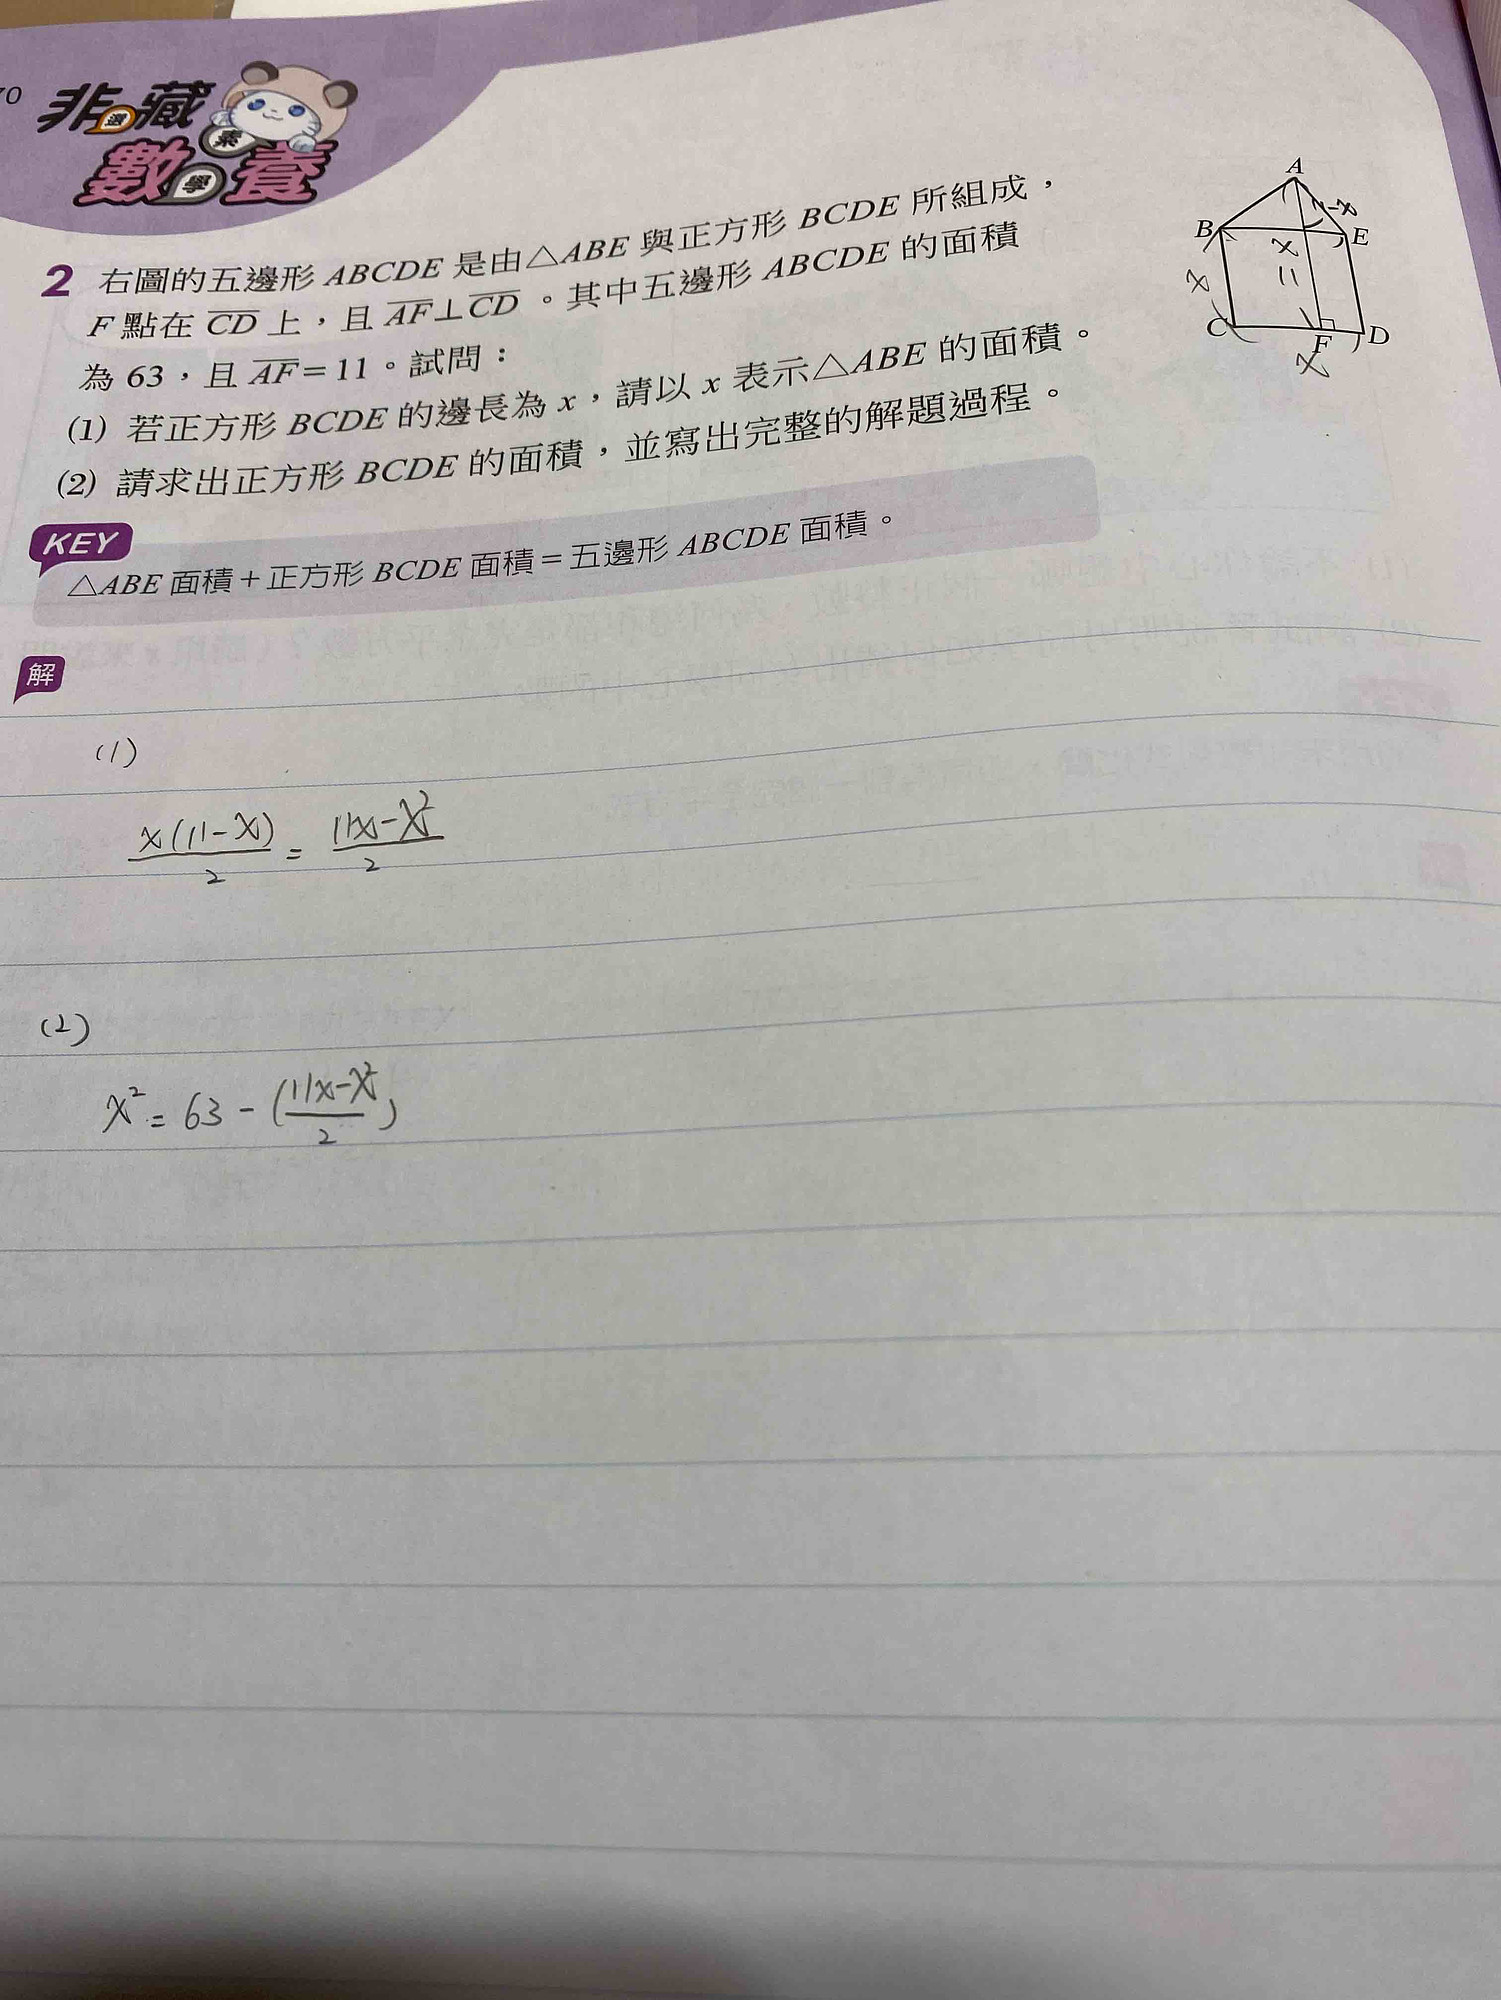 70
非選藏
數學素養
2 右圖的五邊形 ABCDE 是由△ABE 與正方形 BCDE 所組成，
F 點在 CD 上，且 AF⊥CD 。其中五邊形 ABCDE 的面積
為 63，且 AF＝11。試問：
(1) 若正方形 BCDE 的邊長為 x，請以 x 表示△ABE 的面積。
(2) 請求出正方形 BCDE 的面積，並寫出完整的解題過程。
A
11-x
B
E
x
x
11
C
F
D
x
KEY
△ABE 面積＋正方形 BCDE 面積＝五邊形 ABCDE 面積。
解
(1)
x(11-x)/2 = 11x-x²/2
(2)
x² = 63 - (11x-x²/2)